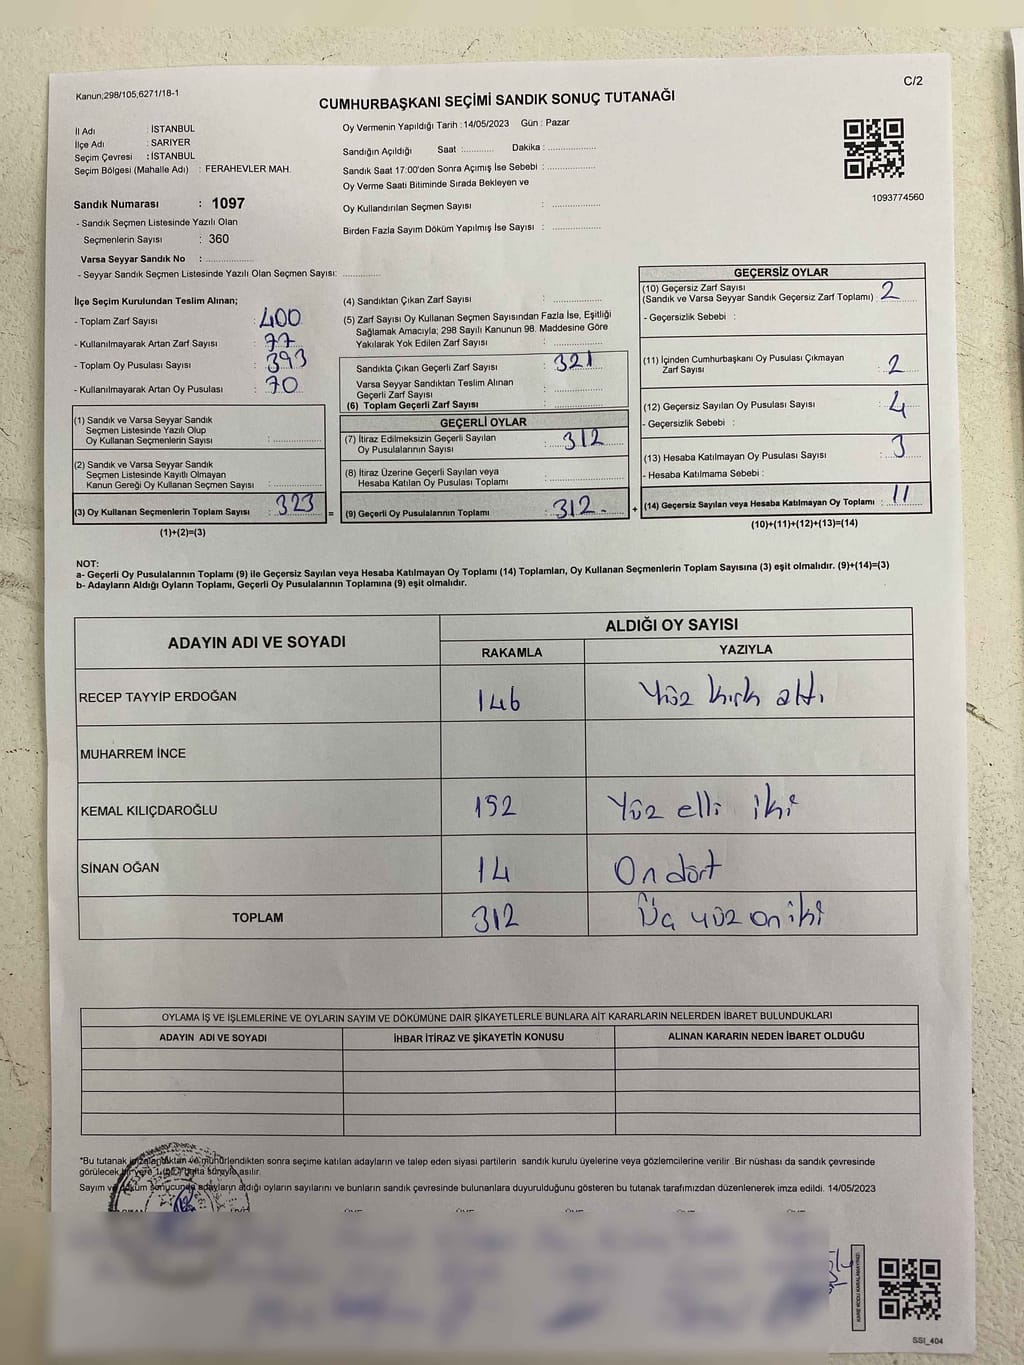 Kanun;298/105;6271/18-1
C/2
CUMHURBAŞKANI SEÇİMİ SANDIK SONUÇ TUTANAĞI
İl Adı : İSTANBUL
İlçe Adı : SARIYER
Seçim Çevresi : İSTANBUL
Seçim Bölgesi (Mahalle Adı) : FERAHEVLER MAH.
Sandık Numarası : 1097
- Sandık Seçmen Listesinde Yazılı Olan
Seçmenlerin Sayısı : 360
Varsa Seyyar Sandık No : ..............
- Seyyar Sandık Seçmen Listesinde Yazılı Olan Seçmen Sayısı: ............
Oy Vermenin Yapıldığı Tarih : 14/05/2023 Gün : Pazar
Sandığın Açıldığı Saat :.......... Dakika : ...............
Sandık Saat 17:00'den Sonra Açımış İse Sebebi : ...............
Oy Verme Saati Bitiminde Sırada Bekleyen ve
Oy Kullandırılan Seçmen Sayısı : ...............
Birden Fazla Sayım Döküm Yapılmış İse Sayısı : ...............
1093774560
İlçe Seçim Kurulundan Teslim Alınan;
- Toplam Zarf Sayısı : 400
- Kullanılmayarak Artan Zarf Sayısı : 77
- Toplam Oy Pusulası Sayısı : 393
- Kullanılmayarak Artan Oy Pusulası : 70
(1) Sandık ve Varsa Seyyar Sandık
Seçmen Listesinde Yazılı Olup
Oy Kullanan Seçmenlerin Sayısı : ...............
(2) Sandık ve Varsa Seyyar Sandık
Seçmen Listesinde Kayıtlı Olmayan
Kanun Gereği Oy Kullanan Seçmen Sayısı : ...............
(3) Oy Kullanan Seçmenlerin Toplam Sayısı : 323 =
(1)+(2)=(3)
(4) Sandıktan Çıkan Zarf Sayısı : ...............
(5) Zarf Sayısı Oy Kullanan Seçmen Sayısından Fazla İse, Eşitliği
Sağlamak Amacıyla; 298 Sayılı Kanunun 98. Maddesine Göre
Yakılarak Yok Edilen Zarf Sayısı : ...............
Sandıkta Çıkan Geçerli Zarf Sayısı : 321
Varsa Seyyar Sandıktan Teslim Alınan
Geçerli Zarf Sayısı : ...............
(6) Toplam Geçerli Zarf Sayısı : ...............
GEÇERLİ OYLAR
(7) İtiraz Edilmeksizin Geçerli Sayılan
Oy Pusulalarının Sayısı : 312
(8) İtiraz Üzerine Geçerli Sayılan veya
Hesaba Katılan Oy Pusulası Toplamı : ...............
(9) Geçerli Oy Pusulalarının Toplamı : 312. +
GEÇERSİZ OYLAR
(10) Geçersiz Zarf Sayısı
(Sandık ve Varsa Seyyar Sandık Geçersiz Zarf Toplamı) : 2
- Geçersizlik Sebebi :
(11) İçinden Cumhurbaşkanı Oy Pusulası Çıkmayan
Zarf Sayısı : 2
(12) Geçersiz Sayılan Oy Pusulası Sayısı : 4
- Geçersizlik Sebebi :
(13) Hesaba Katılmayan Oy Pusulası Sayısı : 3
- Hesaba Katılmama Sebebi :
(14) Geçersiz Sayılan veya Hesaba Katılmayan Oy Toplamı : 11
(10)+(11)+(12)+(13)=(14)
NOT:
a- Geçerli Oy Pusulalarının Toplamı (9) ile Geçersiz Sayılan veya Hesaba Katılmayan Oy Toplamı (14) Toplamları, Oy Kullanan Seçmenlerin Toplam Sayısına (3) eşit olmalıdır. (9)+(14)=(3)
b- Adayların Aldığı Oyların Toplamı, Geçerli Oy Pusulalarının Toplamına (9) eşit olmalıdır.
ADAYIN ADI VE SOYADI
ALDIĞI OY SAYISI
RAKAMLA YAZIYLA
RECEP TAYYİP ERDOĞAN 146 Yüz kırk altı
MUHARREM İNCE
KEMAL KILIÇDAROĞLU 152 Yüz elli iki
SİNAN OĞAN 14 On dört
TOPLAM 312 Üç yüz on iki
OYLAMA İŞ VE İŞLEMLERİNE VE OYLARIN SAYIM VE DÖKÜMÜNE DAİR ŞİKAYETLERLE BUNLARA AİT KARARLARIN NELERDEN İBARET BULUNDUKLARI
ADAYIN ADI VE SOYADI İHBAR İTİRAZ VE ŞİKAYETİN KONUSU ALINAN KARARIN NEDEN İBARET OLDUĞU
*Bu tutanak imzalandıktan ve mühürlendikten sonra seçime katılan adayların ve talep eden siyasi partilerin sandık kurulu üyelerine veya gözlemcilerine verilir .Bir nüshası da sandık çevresinde
görülecek bir yere 1 (bir) hafta süreyle asılır.
Sayım ve döküm sonucunda adayların aldığı oyların sayılarını ve bunların sandık çevresinde bulunanlara duyurulduğunu gösteren bu tutanak tarafımızdan düzenlenerek imza edildi. 14/05/2023
KARE KODU KARALAMAYINIZ!
SSI_404